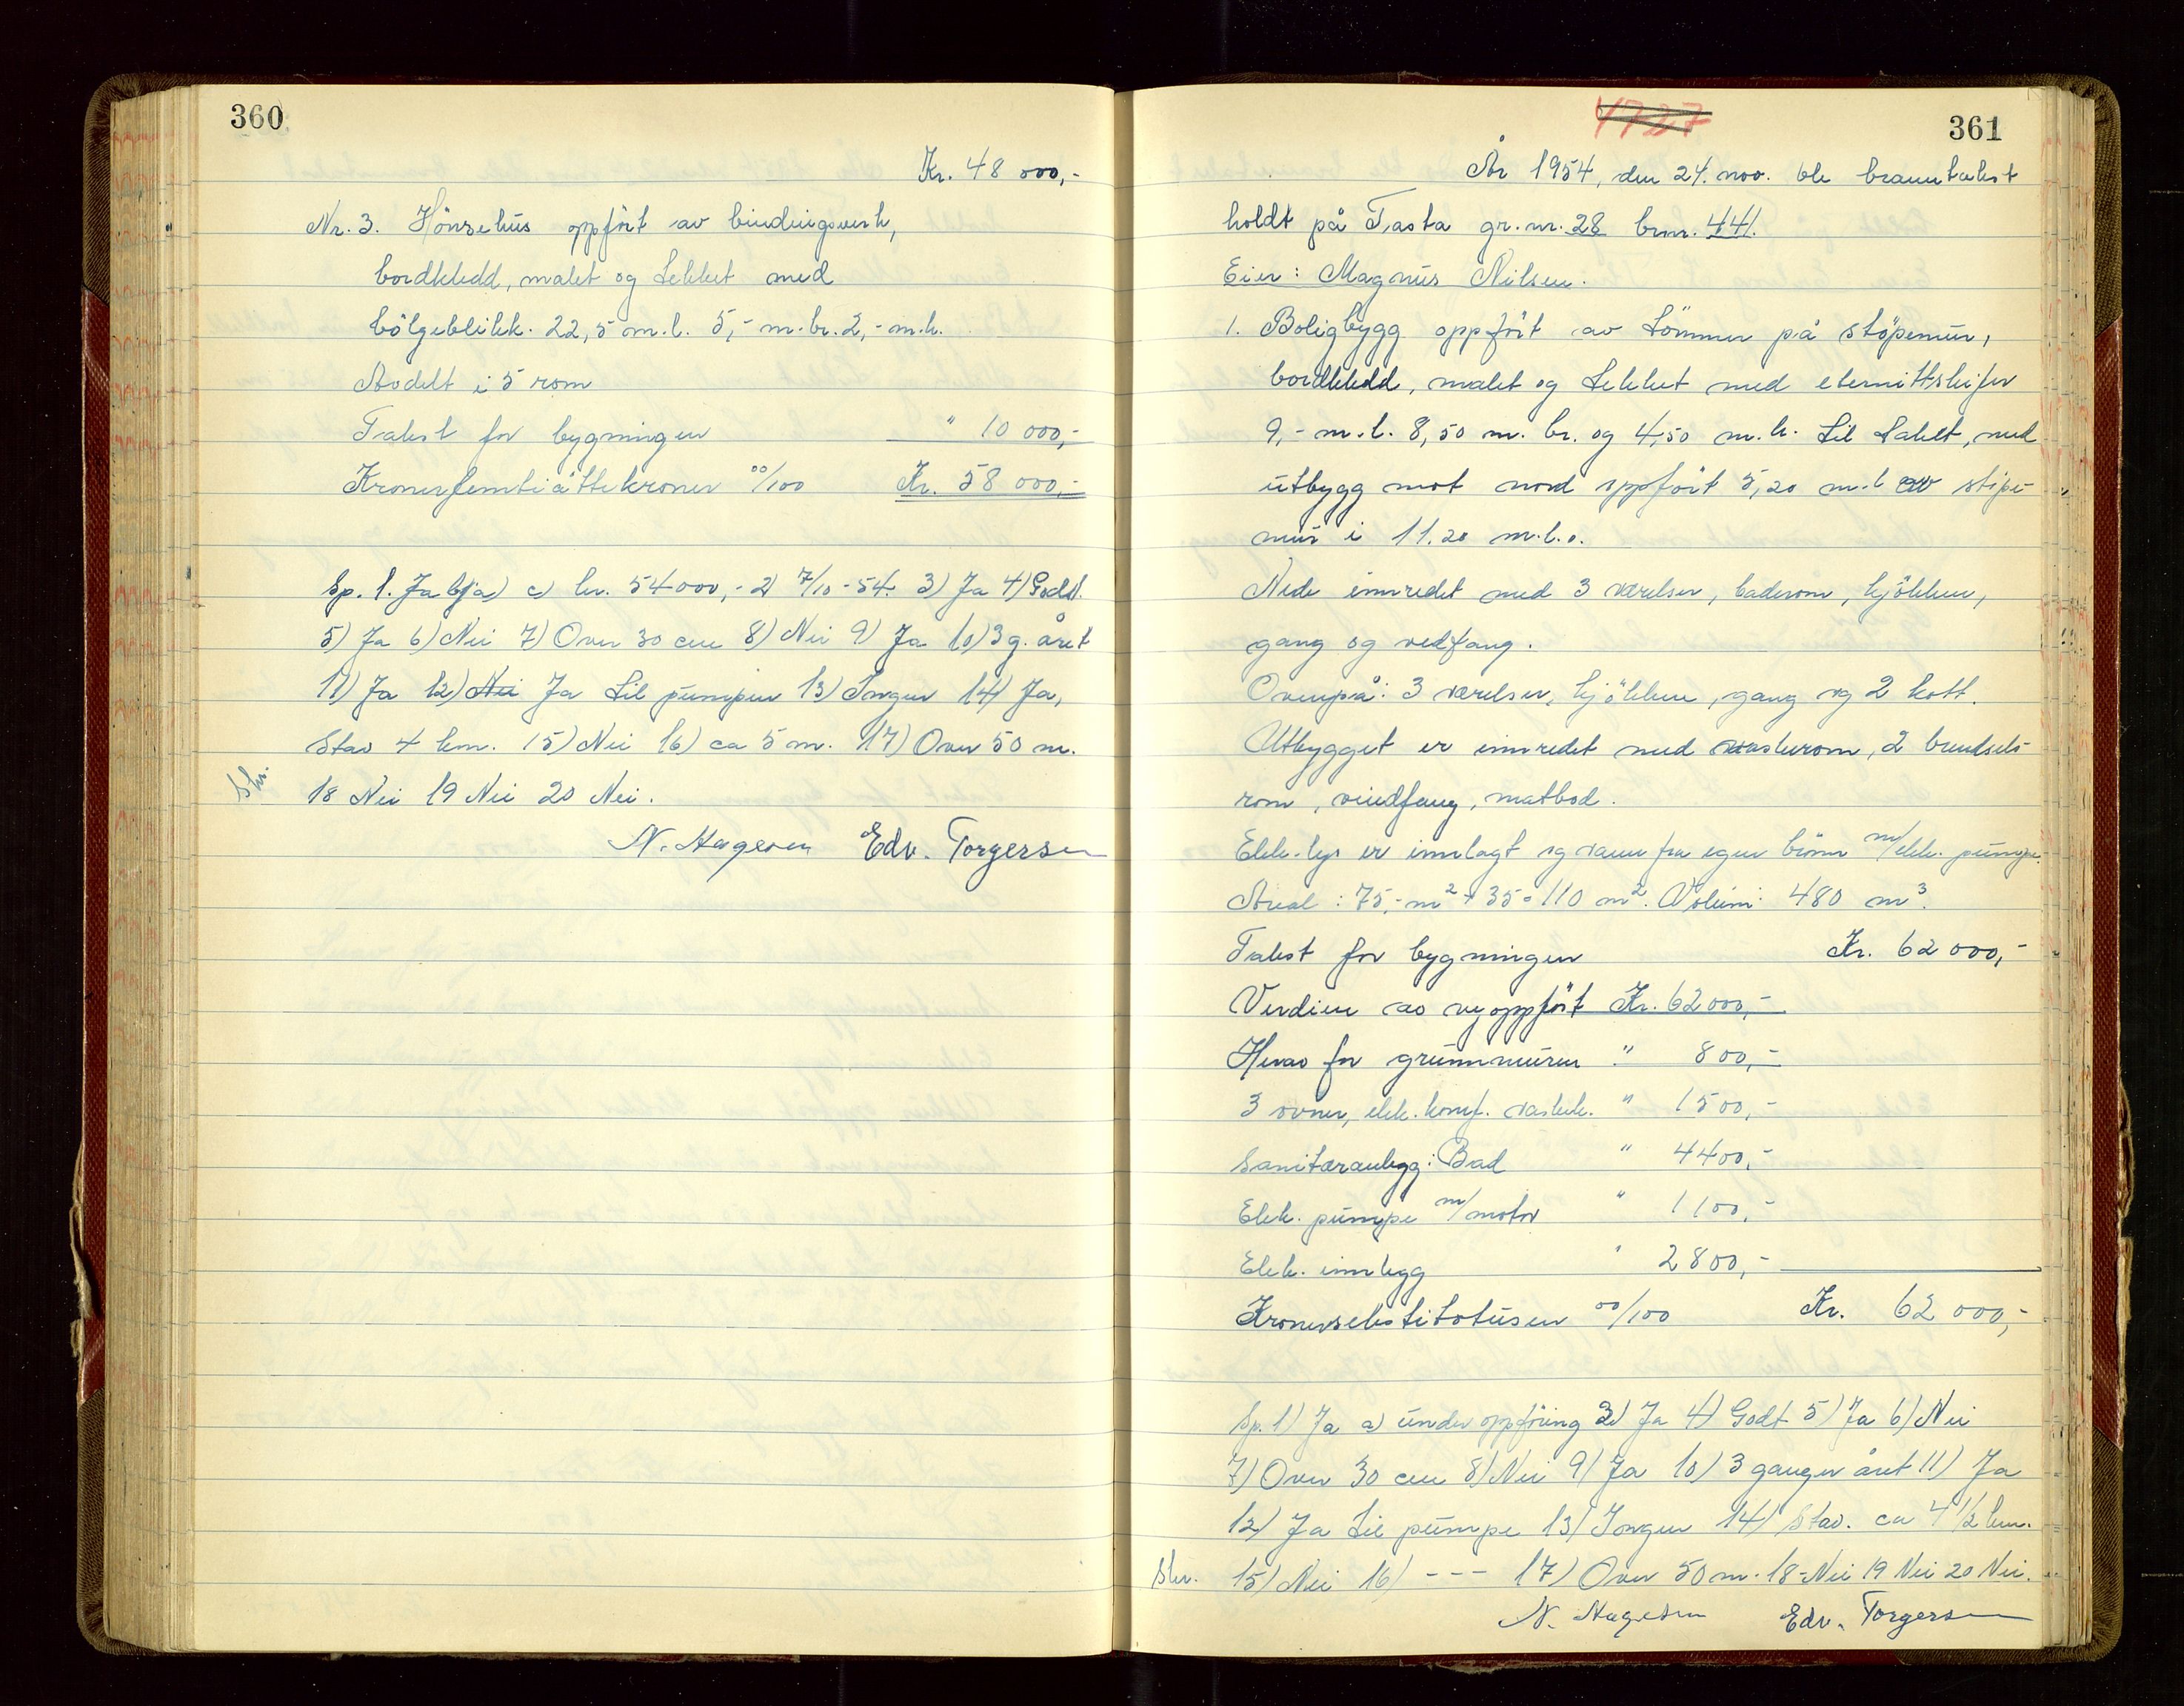 360
Kr. 48 000,-
Nr. 3. Hönsehus oppfört av bindingsverk,
bordkledd, malet og tekket med
bölgeblikk. 22,5 m.l. 5,- m.br. 2,- m.h.
Avdelt i 5 rom
Takst for bygningen " 10 000,-
Kronerfemtiåttekroner 00/100 Kr. 58 000,-
Sp. 1. Ja b) a) c) kr. 54000,- 2) 7/10-54. 3) Ja 4) Godt.
5) Ja 6) Nei 7) Over 30 cm 8) Nei 9) Ja 10) 3 g. året
11) Ja 12) Nei Ja til pumpen 13) Ingen 14) Ja,
Stav 4 km. 15) Nei 16) ca 5 m. 17) Over 50 m.
Skr.
18 Nei 19 Nei 20 Nei.
N. Hagesen Edv. Torgersen
1727
361
År 1954, den 24. nov. ble branntakst
holdt på Tasta gr.nr. 28 brnr. 441.
Eier: Magnus Nilsen.
1. Boligbygg oppfört av tömmer på stöpemur,
bordkledd, malet og tekket med eternittskifer
9,- m.l. 8,50 m. br. og 4,50 m.h. til taket, med
utbygg mot nord oppfört 5,20 m.l av stöpe-
mur i 11.20 m.l..
Nede innredet med 3 værelser, baderom, kjökken,
gang og vedfang.
Ovenpå: 3 værelser, kjökken, gang og 2 kott.
Utbygget er innredet med vaskerom, 2 brendsels-
rom, vindfang, matbod.
Elek. lys er innlagt og vann fra egen brönn m/elek. pumpe.
Areal: 75,- m² + 35 = 110 m². Volum: 480 m³.
Takst for bygningen Kr. 62 000,-
Verdien av nyoppfört Kr. 62000,-
Herav for grunnmuren " 800,-
3 ovner, elek. komf. vaskek. " 1500,-
Sanitæranlegg: Bad " 4400,-
Elek. pumpe m/motor " 1100,-
Elek. innlegg " 2800,-
Kronersekstitotusen 00/100 Kr. 62 000,-
Sp. 1) Ja a) under oppföring 3) Ja 4) Godt 5) Ja 6) Nei
7) Over 30 cm 8) Nei 9) Ja 10) 3 ganger året 11) Ja
12) Ja til pumpe 13) Ingen 14) Stav. ca 4 1/2 km.
Skr. 15) Nei 16) --- 17) Over 50 m. 18-Nei 19 Nei 20 Nei.
N. Hagesen Edv. Torgersen